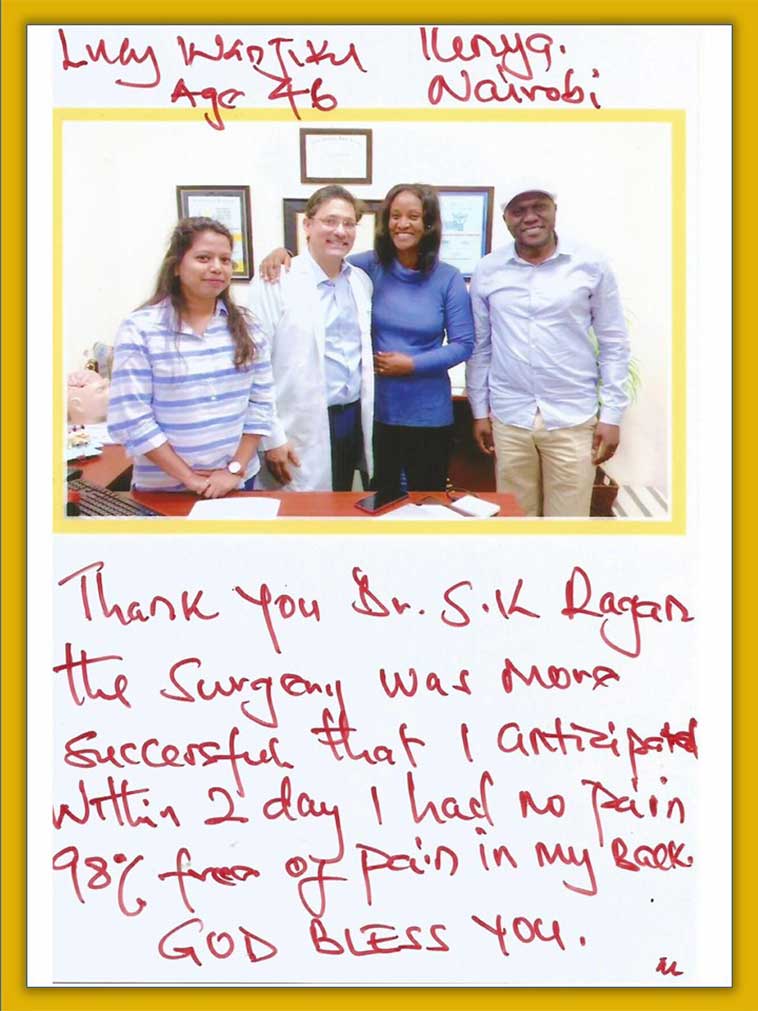 Lucy WANJIKU Kenya.
Age 46 Nairobi
Thank you Dr. S.K Ragan
the Surgery was more
successful that I anticipated
Within 2 day I had no pain
98% free of pain in my Back.
GOD BLESS YOU.